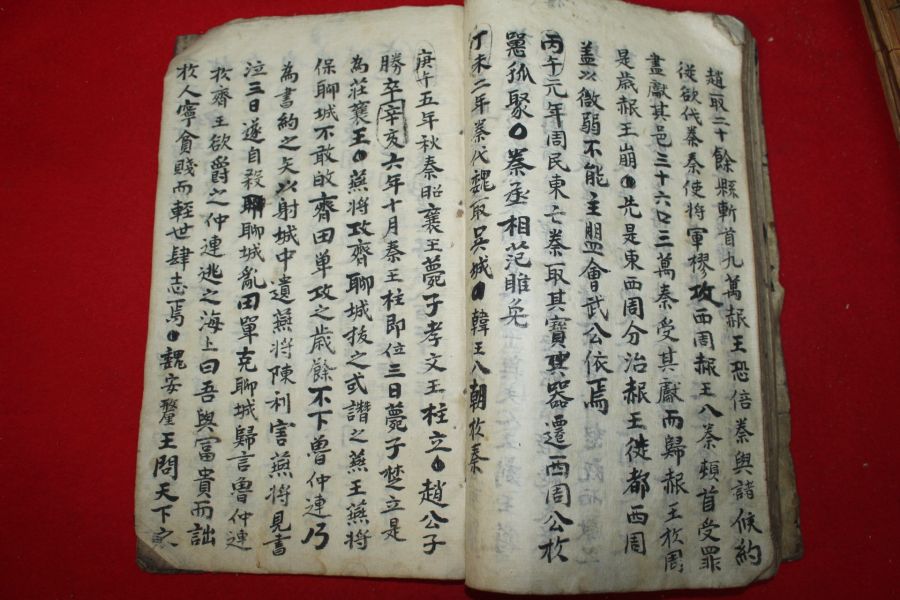 趙取二十餘縣斬首九萬赧王恐倍秦與諸候約
從欲伐秦秦使將軍摎攻西周赧王入秦頓首受罪
盡獻其邑三十六口三萬秦受其獻而歸赧王於周
是歲赧王崩○先是東西周分治赧王徙都西周
蓋以微弱不能主盟會武公依焉
丙午元年周民東亡秦取其寶器遷西周公於
𢠸狐聚○秦丞相范睢免
丁未二年秦伐魏取吳城○韓王入朝於秦
庚午五年秋秦昭襄王薨子孝文王柱立○趙公子
勝卒辛亥六年十月秦王柱即位三日薨子楚立是
為莊襄王○燕將攻齊聊城拔之或譖之燕王燕將
保聊城不敢故齊田單攻之歲餘不下魯仲連乃
為書約之矢以射城中遺燕將陳利害燕將見書
泣三日遂自殺聊城亂田單克聊城歸言魯仲連
於齊王欲爵之仲連逃之海上曰吾與富貴而詘
於人寧貧賤而輕世肆志焉○魏安釐王問天下之